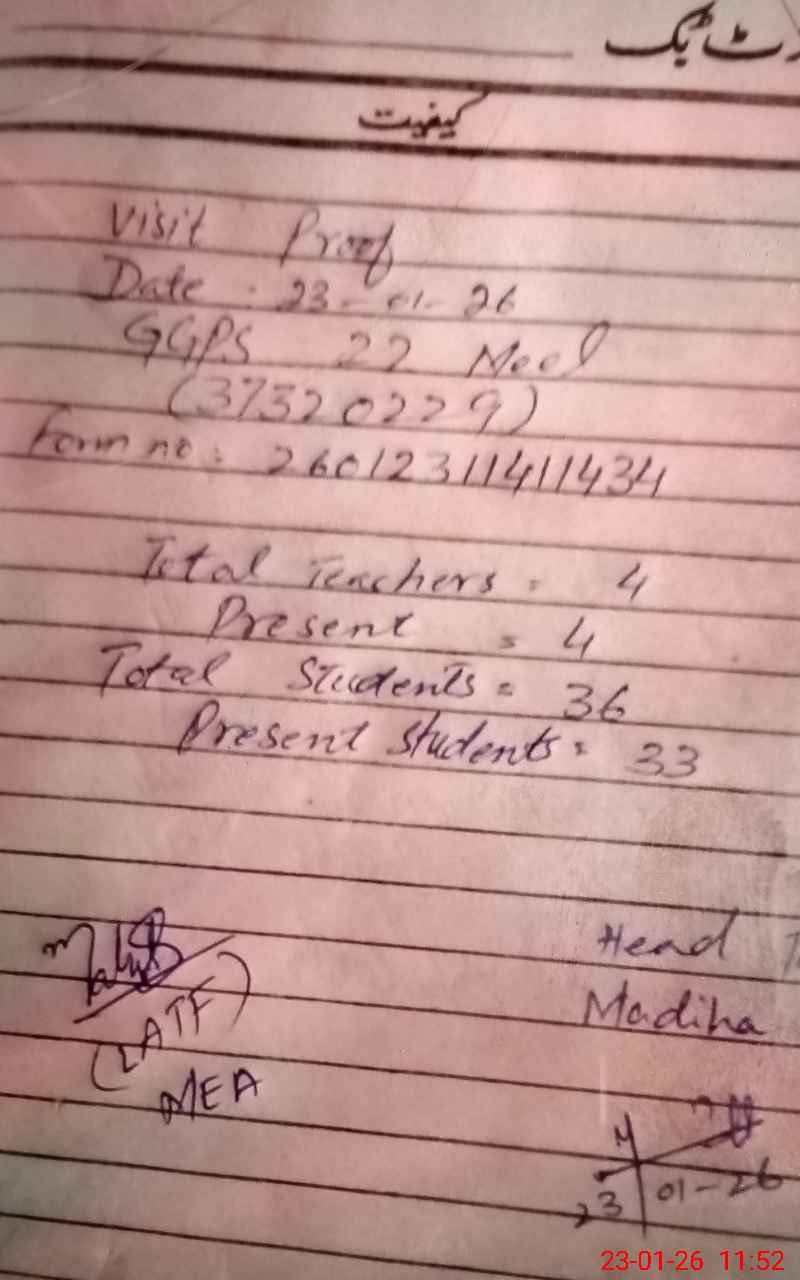 کیفیت
Visit Proof
Date : 23-01-26
GGPS 22 Meel
(37320229)
Form no: 26012311411434
Total Teachers = 4
Present = 4
Total Students = 36
Present students = 33
(LATF)
MEA
Head
Madiha
23 01-26
23-01-26 11:52